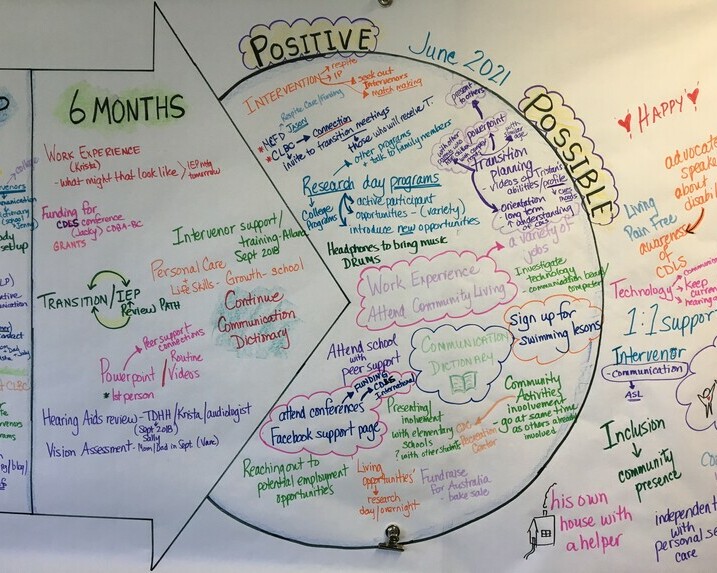 6 MONTHS
WORK EXPERIENCE
(Krista)
- what might that look like > IEP mtg
tomorrow
Funding for
CDLS conference
(Jacky) CDBA-BC
GRANTS
TRANSITION/IEP
REVIEW PATH
Intervenor support/
training - Allana
Sept 2018
Personal Care
Life Skills - Growth - school
Continue
Communication
Dictionary
Peer support
connections
Powerpoint / Routine
Videos
* 1st person
Hearing Aids review - TDHH/Krista/audiologist
(Sept 2018)
Sally
Vision Assessment - Mom/Dad in Sept (Vanc)
POSITIVE
June 2021
POSSIBLE
INTERVENTION
respite
IP
seek out
Intervenors
match making
Respite Care/Funding
*NEED Jssery
*CLBC
Connection
invite to transition meetings
those who will receive T.
other programs
talk to family members
Research day programs
College
Programs
active participant
opportunities - (variety)
introduce new opportunities
Headphones to bring music
DRUMS
present
to others
powerpoint
Transition
planning
- videos of Tristan's
abilities/profile
Orientation
- long term
understanding
of CDLS
CDLS
needs
a variety of
jobs
Work Experience
Attend Community Living
Investigate
technology
- communication board/
computer
sign up for
- swimming lessons
COMMUNICATION
DICTIONARY
Attend school
with
peer support
FUNDING
CDLS
International
attend conferences
Facebook support page
Presenting
involvement
with elementary
schools
? with other students
CRC
Recreation
Center
Community
Activities
involvement
- go at same time
as others already
involved
Reaching out to
potential employment
opportunities
Living
opportunities'
research
day/overnight
Fundraise
for Australia
- bake sale
HAPPY
advocate
speak
about
disabil
awareness
of CDLS
Living
Pain Free
Technology
communic
Keep
curren
hearing a
1:1 support
Intervenor
- communication
ASL
Inclusion
community
presence
his own
house with
a helper
independent
with
personal se
care